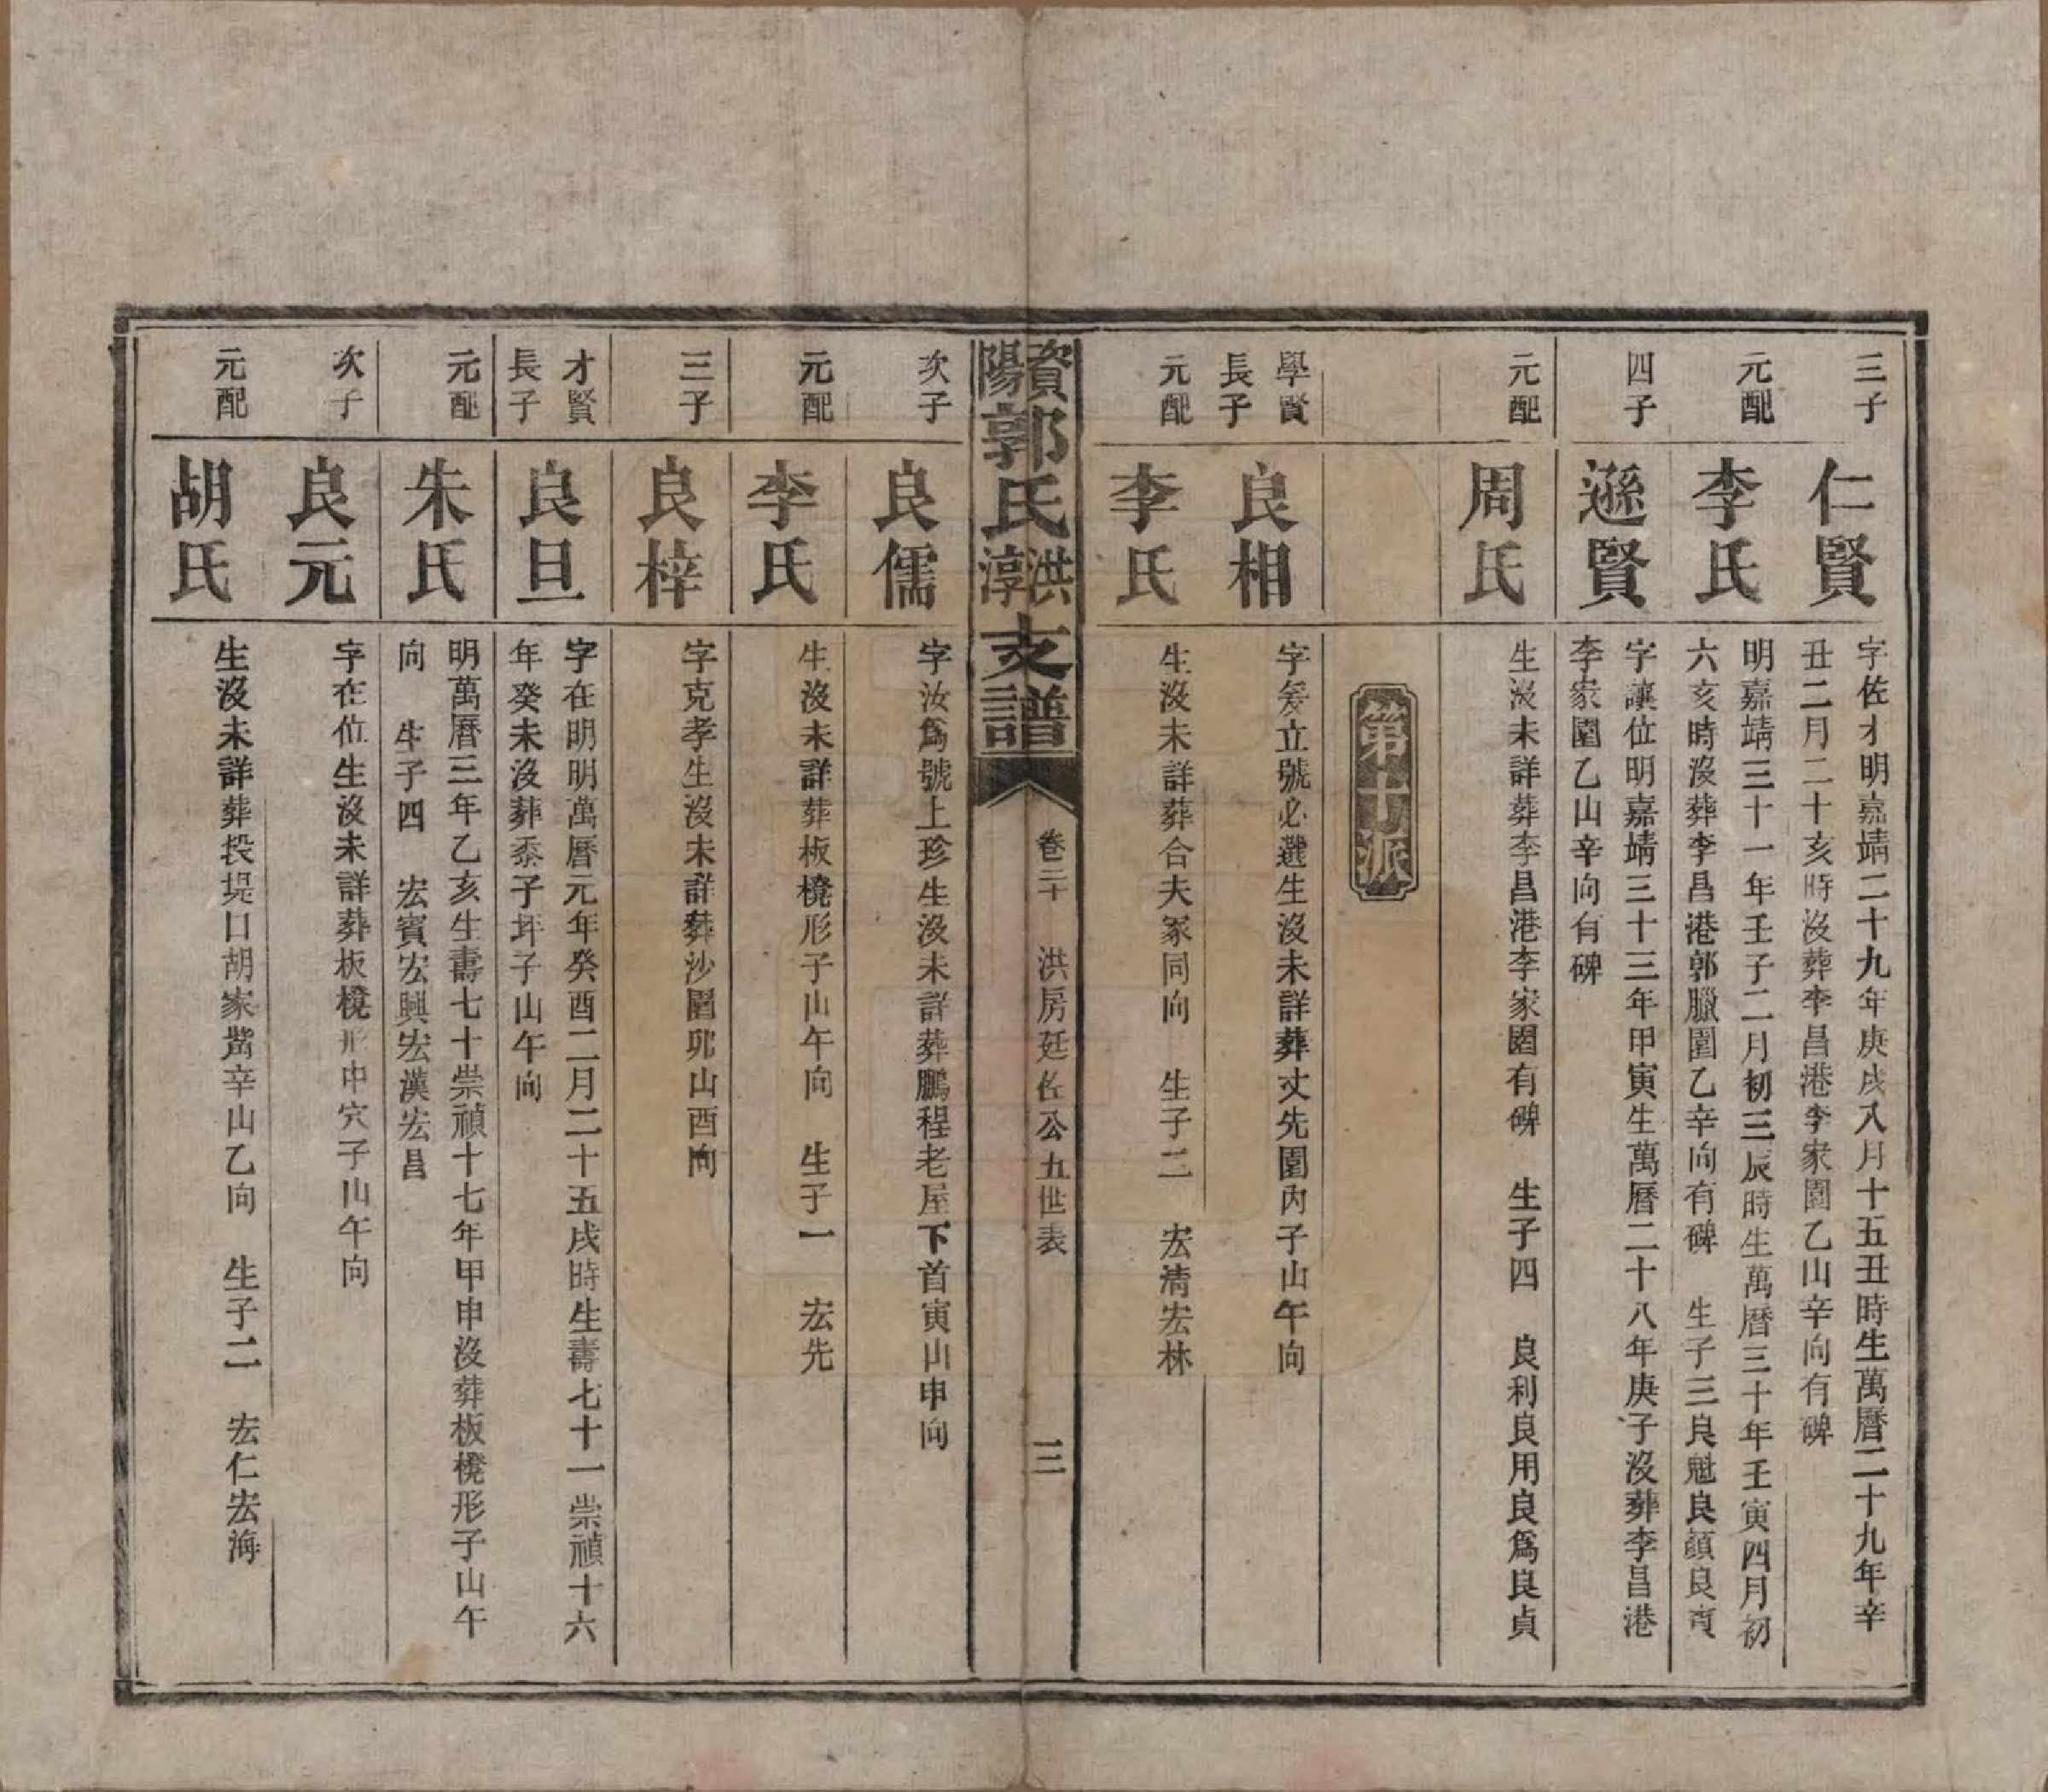 三子
仁賢
字佐才明嘉靖二十九年庚戌八月十五丑時生萬曆二十九年辛
丑二月二十亥時沒葬李昌港李家園乙山辛向有碑
元配
李氏
明嘉靖三十一年壬子二月初三辰時生萬曆三十年壬寅四月初
六亥時沒葬李昌港郭臘園乙辛向有碑　生子三良魁良顏良貢
四子
遜賢
字讓位明嘉靖三十三年甲寅生萬曆二十八年庚子沒葬李昌港
李家園乙山辛向有碑
元配
周氏
生沒未詳葬李昌港李家園有碑　生子四　良利良用良爲良貞
第十派
學賢
長子
良相
字矣立號必選生沒未詳葬丈先園內子山午向
元配
李氏
生沒未詳葬合夫冢同向　生子二　宏清宏林
資陽郭氏洪淳支譜
卷二十　洪房廷佐公五世表
三
次子
良儒
字汝爲號上珍生沒未詳葬鵬程老屋下首寅山申向
元配
李氏
生沒未詳葬板櫈形子山午向　生子一　宏先
三子
良梓
字克孝生沒未詳葬沙園卯山酉向
才賢
長子
良旦
字在明明萬曆元年癸酉二月二十五戌時生壽七十一崇禎十六
年癸未沒葬黍子坪子山午向
元配
朱氏
明萬曆三年乙亥生壽七十崇禎十七年甲申沒葬板櫈形子山午
向　生子四　宏賓宏興宏漢宏昌
次子
良元
字在位生沒未詳葬板櫈形中穴子山午向
元配
胡氏
生沒未詳葬投堤口胡家嵩辛山乙向　生子二　宏仁宏海